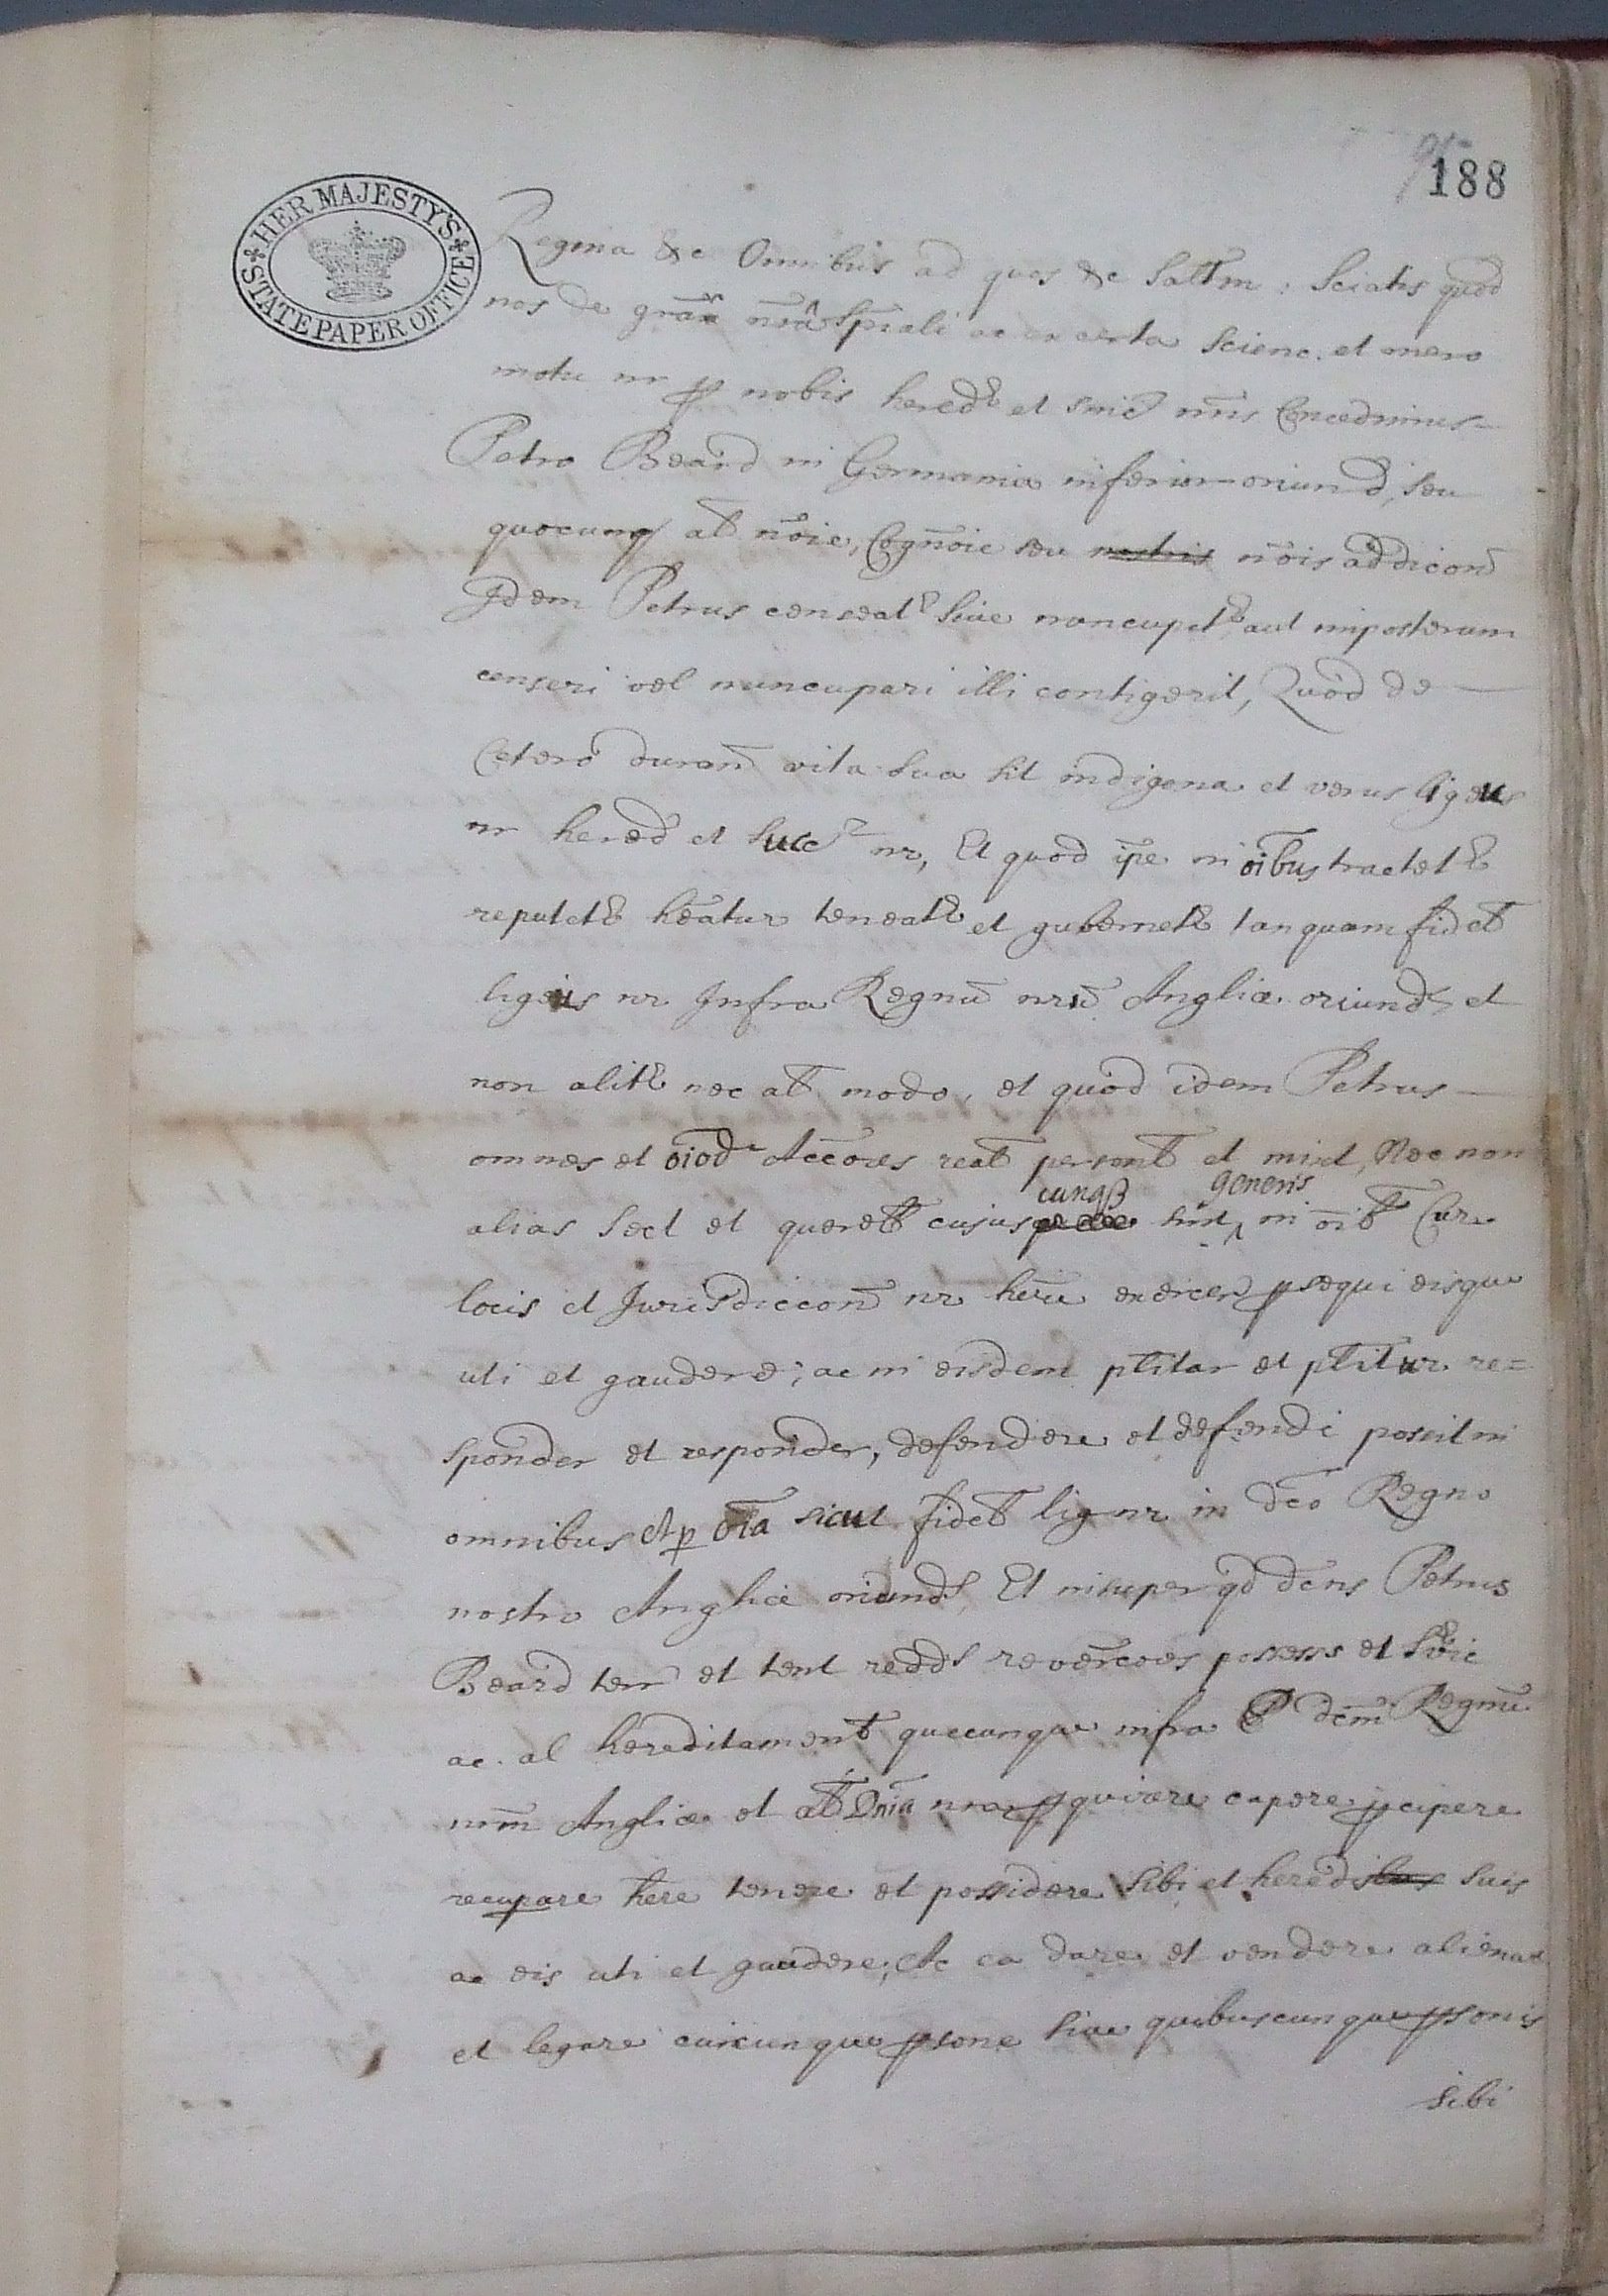 188
HER MAJESTY'S
STATE PAPER OFFICE
Regina &c Omnibus ad quos &c Saltm: Sciatis quod
nos de grãa nrã Spiali ac ex certa Scienc. et mero
motu nr p nobis hered et succ nris Concedimus
Petro Beard in Germania inferior oriund, seu
quocunq al nõie, Cognõie seu nostris nõis addicon
Idem Petrus censeat Sive nuncupet aut imposterum
censeri vel nuncupari illi contigerit, Quod de
Cetero duran vita Sua sit indigena et verus ligeus
nr hered et Succ nr, Et quod ipe in oibus tractet
reputet heatur teneat et gubernet tanquam fidel
ligeus nr Infra Regnu nru Angliæ oriund, et
non alit nec al modo, et quod idem Petrus
omnes et oiod Accoes real personl et mixt, Nec non
cunq generis
alias Sect et querel cujus sint, in oib Cur
locis et Jurisdiccon nr here exercer psequi eisque
uti et gaudere; ac in eisdem plitar et plitur re=
sponder et responder, defendere et defendi possit in
omnibus et p oia sicut fidel lig nr in dco Regno
nostro Angliæ oriund, Et insuper qd dcus Petrus
Beard terr et tent redd revercoes possess et Svic
ac al hereditament quecunque infra dcm Regnu
nrm Angliæ et al Dnia nra pquirere capere pcipere
recupare here tenere et possidere Sibi et heredibus Suis
ac eis uti et gaudere, Ac ea dare et vendere alienar
et legare cuicunque psone Sive quibuscunque psonis
sibi